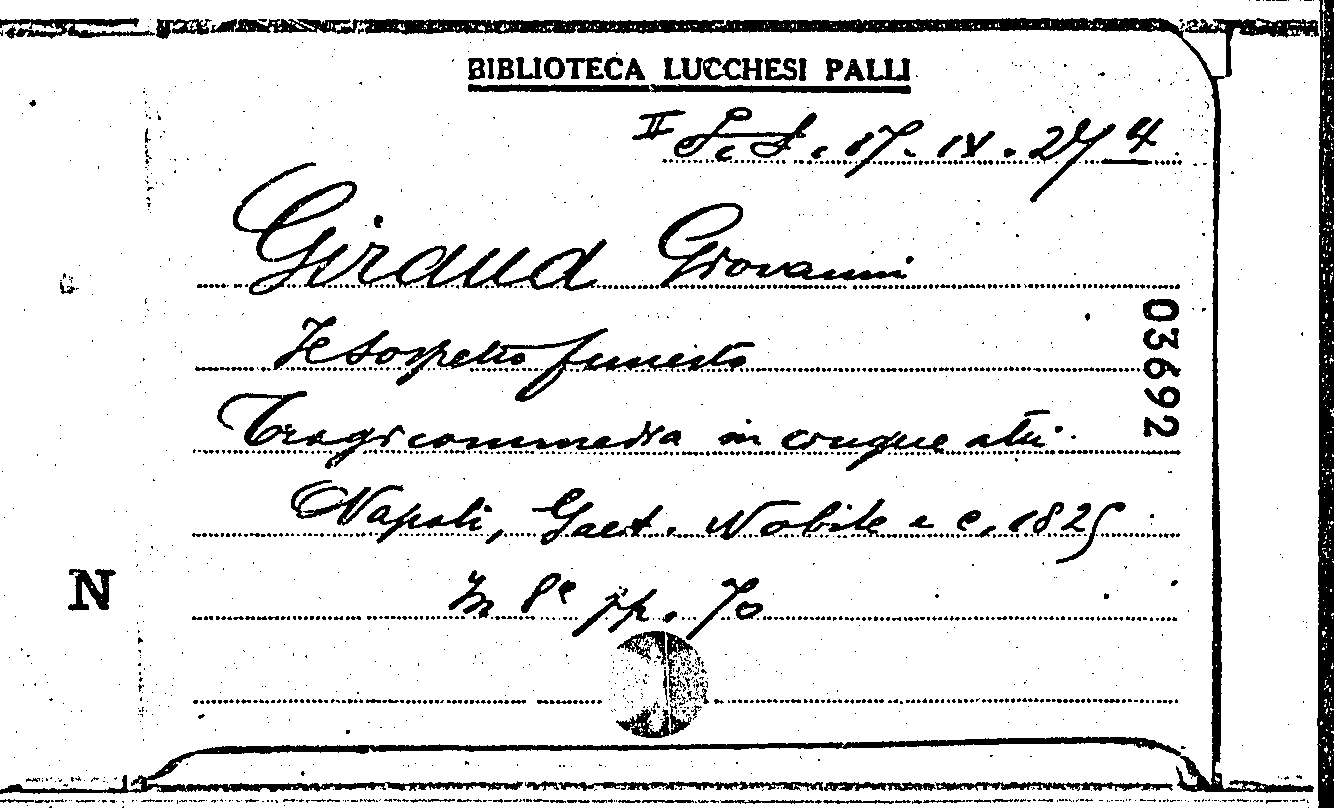 BIBLIOTECA LUCCHESI PALLI
II S. S. 17. IX. 27/4
Giraud Giovanni
Il sospetto funesto
Tragicommedia in cinque atti.
Napoli, Gaet. Nobile e C. 1825
In 8° pp. 70
03692
N